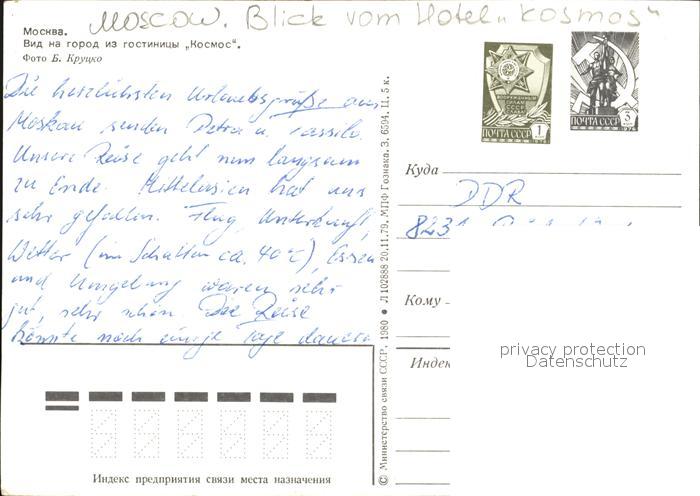 Москва. MOSCOW. Blick vom Hotel „Kosmos"
Вид на город из гостиницы „Космос".
Фото Б. Круцко
Die herzlichsten Urlaubsgrüße aus
Moskau senden Petra u. Tassilo.
Unsere Reise geht nun langsam
zu Ende. Mittelasien hat uns
sehr gefallen. Flug, Unterkunft,
Wetter (im Schatten ca. 40°C), Essen
und Umgebung waren sehr
gut, sehr schön. Die Reise
könnte noch einige Tage dauern.
ВООРУЖЕННЫМ
СИЛАМ
СССР
ПОЧТА СССР 1 КОП 1976
ПОЧТА СССР 3 КОП 1976
Куда
DDR
8231
Кому
Индек
privacy protection
Datenschutz
Индекс предприятия связи места назначения
© Министерство связи СССР, 1980 ● Л 102888 20.11.79. МПФ Гознака. З. 6594. Ц. 5 к.